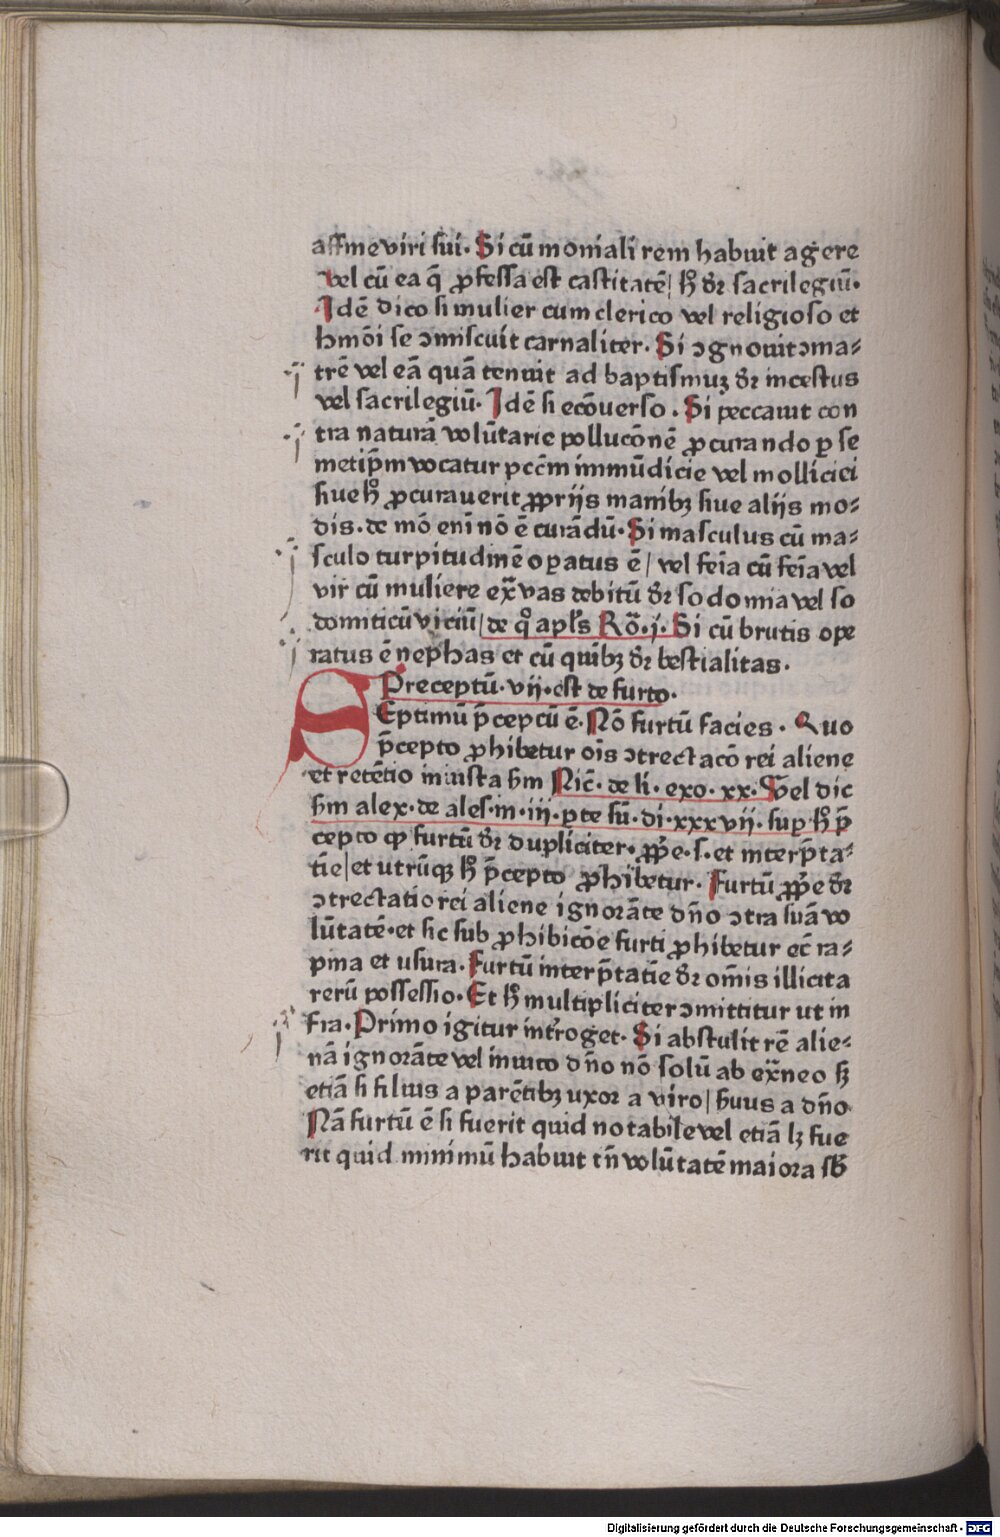 affine viri sui. Si cū moniali rem habuit agere
vel cū ea q̄ ꝓfessa est castitatē/ hͦ dr̄ sacrilegiū.
Idē dico si mulier cum clerico vel religioso et
hmōi se ꝯmiscuit carnaliter. Si ꝯgnouit ꝯma⸗
trē vel eā quā tenuit ad baptismuꝫ dr̄ incestus
vel sacrilegiū. Idē si ecōuerso. Si peccauit con
tra naturā volūtarie pollucōnē ꝓcurando ꝑ se
metip̄m vocatur pccm̄ immūdicie vel molliciei
siue hͦ ꝓcurauerit ꝓprijs manibꝫ siue alijs mo⸗
dis. de mō eni nō ē curādū. Si masculus cū ma⸗
sculo turpitudinē oꝑatus ē/ vel feīa cū feīa vel
vir cū muliere ex̄ vas debitū dr̄ sodomia vel so
domiticū viciū/ de qͦ apl̄s Rō. i. Si cū brutis ope
ratus ē nephas et cū quibꝫ dr̄ bestialitas.
Preceptū. vij. est de furto.
SEptimū p̄ceptū ē. Nō furtū facies. Quo
p̄cepto ꝓhibetur oīs ꝯtrectacō rei aliene
et retētio iniusta hm̄ Nic̄. de li. exo. xx. Vel dic
hm̄ alex. de ales. in. iii. ꝑte sū. di. xxxvii. suꝑ hͦ p̄
cepto ꝙ furtū dr̄ dupliciter. ꝓpe. s. et interp̄ta⸗
tīe/ et utrūqꝫ hͦ p̄cepto ꝓhibetur. Furtū ꝓpe dr̄
ꝯtrectatio rei aliene ignorāte dn̄o ꝯtra suā vo
lūtatē. et sic sub ꝓhibicōe furti ꝓhibetur ec̄ ra⸗
pina et usura. Furtū interp̄tatīe dr̄ om̄is illicita
rerū possessio. Et hͦ multipliciter ꝯmittitur ut in
fra. Primo igitur intr̄oget. Si abstulit rē alie⸗
nā ignorāte vel inuito dn̄o nō solū ab ex̄neo sꝫ
etiā si filius a parētibꝫ uxor a viro/ suus a dn̄o.
Nā furtū ē si fuerit quid notabile vel etiā lꝫ fue
rit quid minimū habuit tn̄ volūtatē maiora sb̄
Digitalisierung gefördert durch die Deutsche Forschungsgemeinschaft - DFG